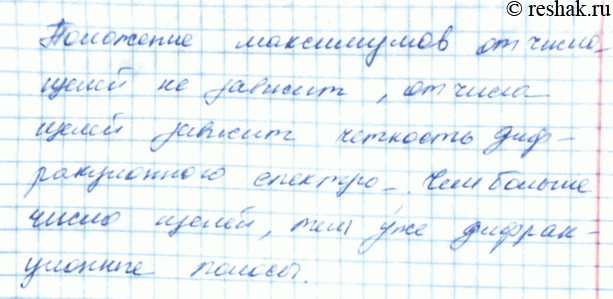 © reshak.ru
Положение максимумов от числа
щелей не зависит, от числа
щелей зависит четкость диф-
ракционного спектра. Чем больше
число щелей, тем уже дифрак-
ционные полосы.